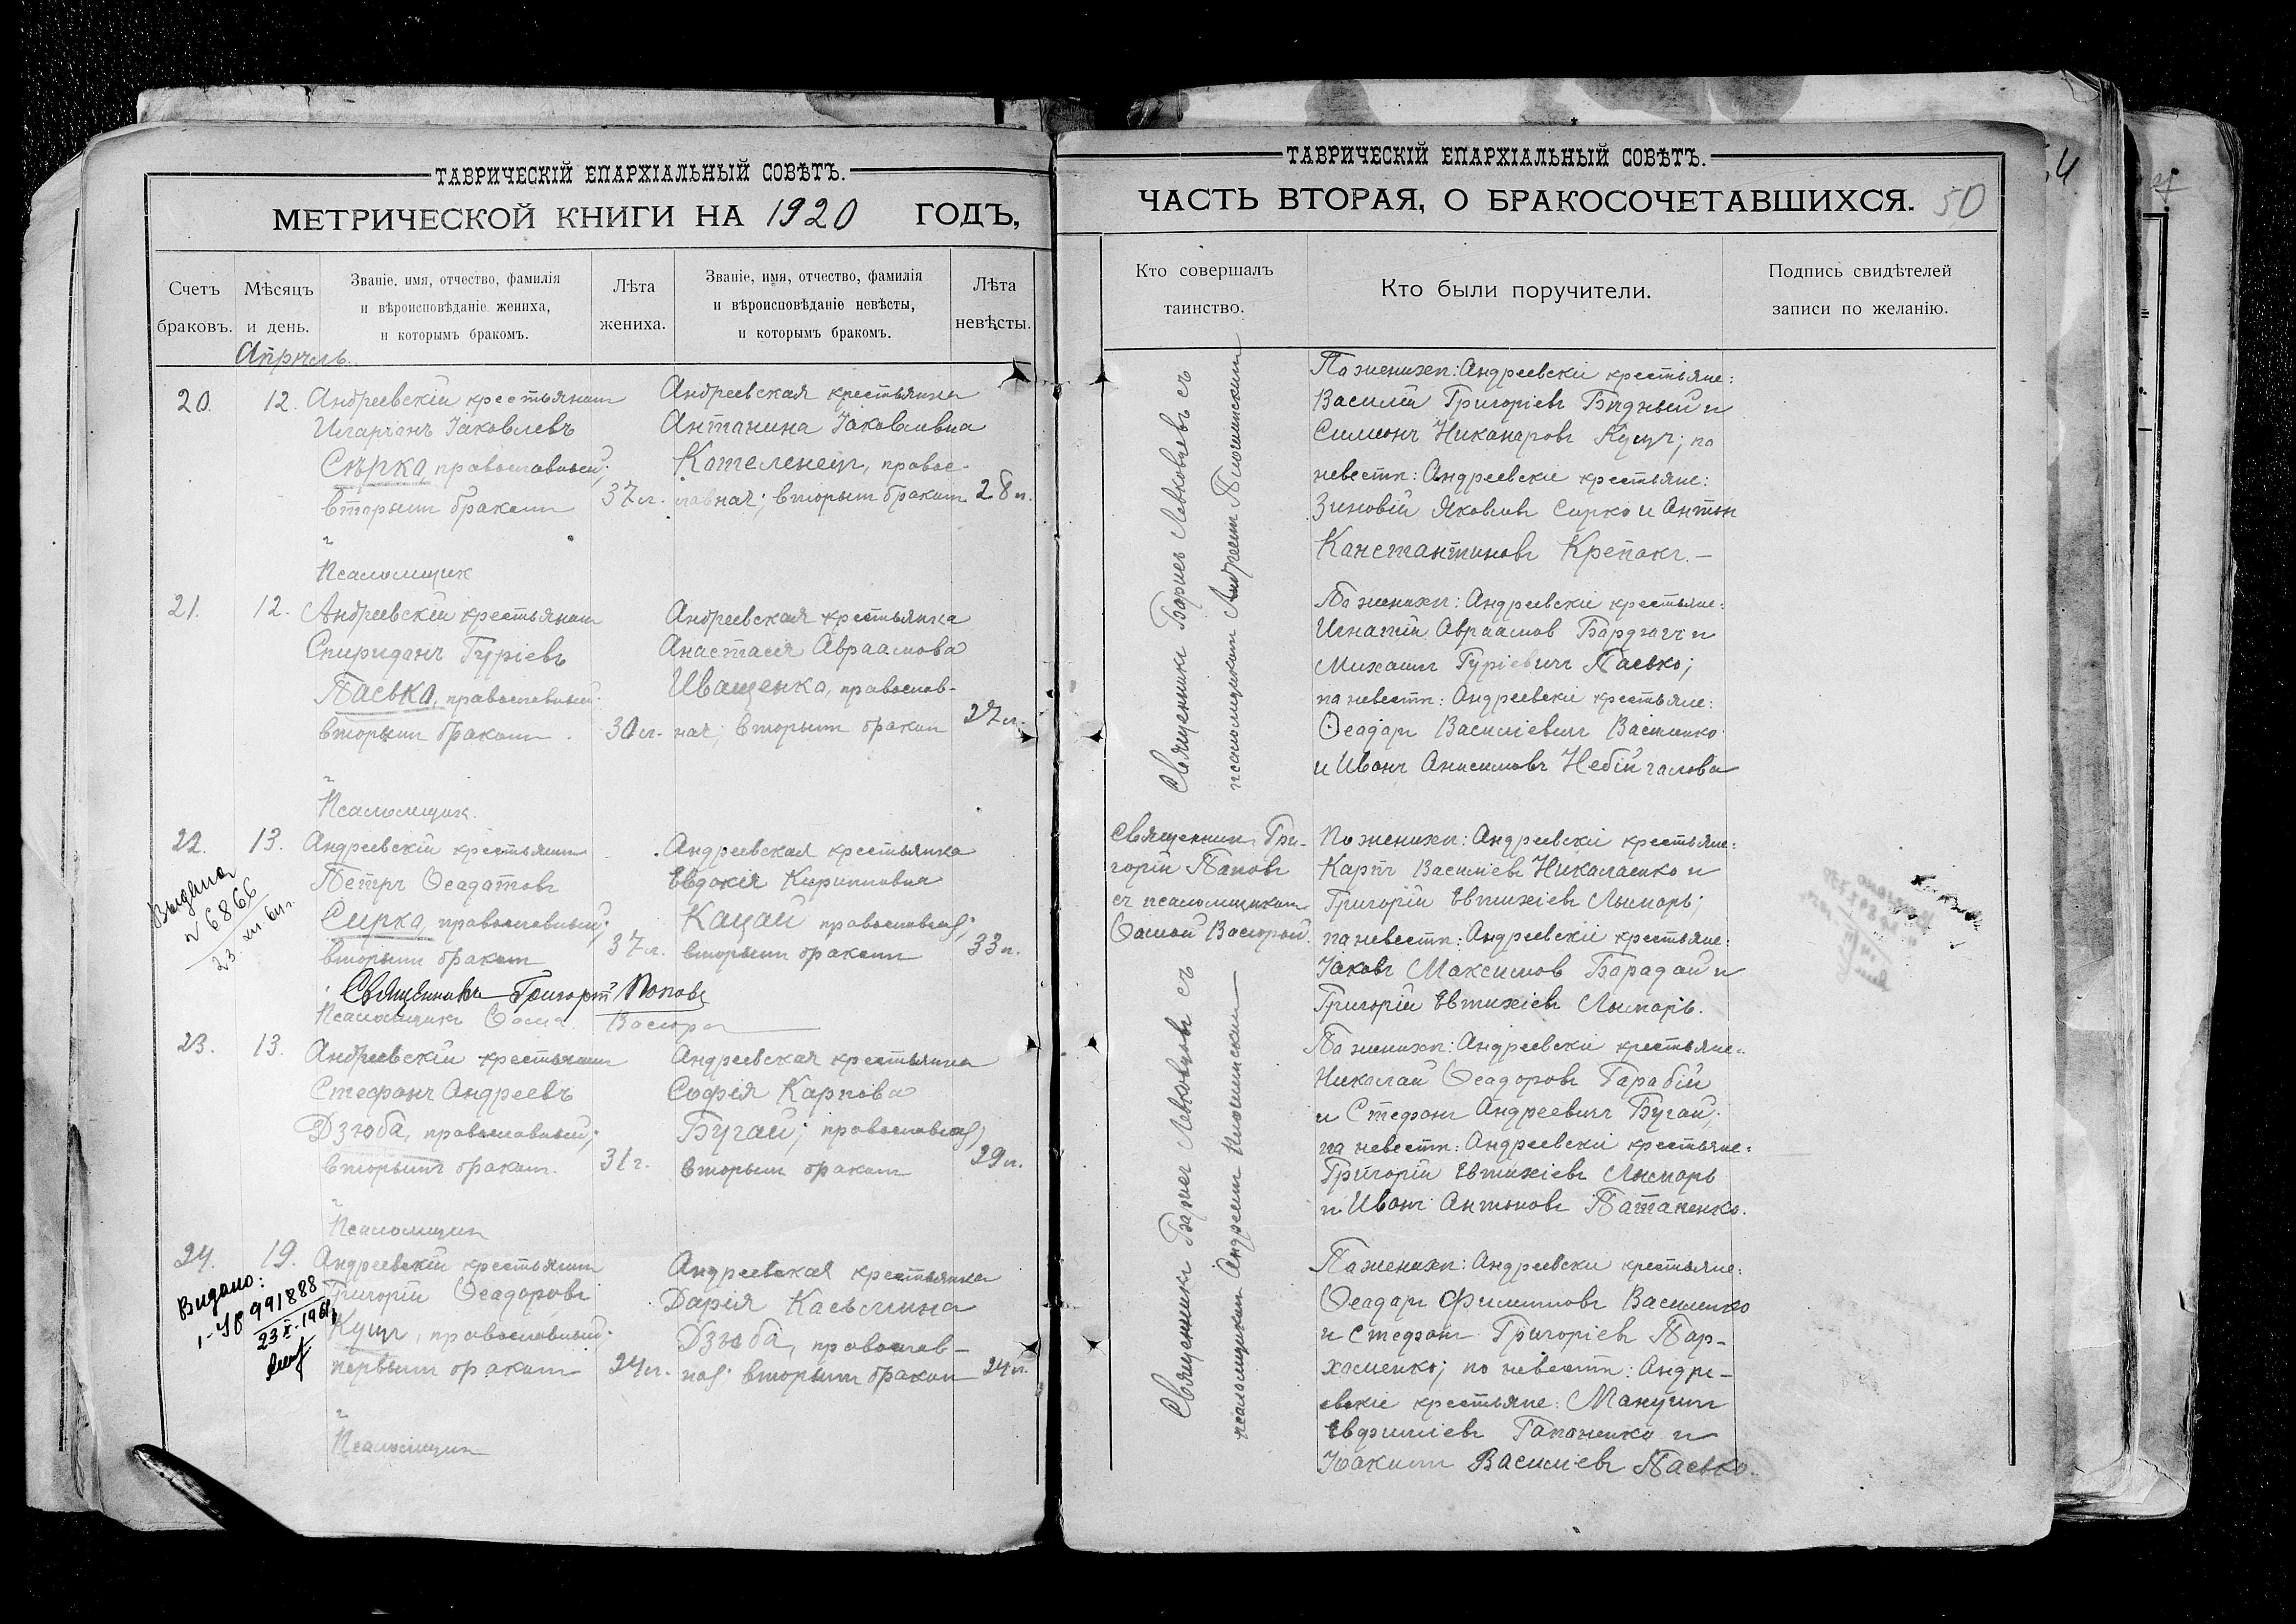 ТАВРИЧЕСКІЙ ЕПАРХІАЛЬНЫЙ СОВѢТЪ.
МЕТРИЧЕСКОЙ КНИГИ НА 1920 ГОДЪ,
Счетъ браковъ.
Мѣсяцъ и день.
Званіе, имя, отчество, фамилія
и вѣроисповѣданіе жениха,
и которымъ бракомъ.
Лѣта жениха.
Званіе, имя, отчество, фамилія
и вѣроисповѣданіе невѣсты,
и которымъ бракомъ.
Лѣта невѣсты.
Апрѣль.
20. 12. Андреевскій крестьянин
Иларіонъ Іаковлевъ
Сѣрко, православный;
вторым браком 37 л.
Андреевская крестьянка
Антонина Іаковлевна
Котеленец, правос-
лавная; вторым браком 28 л.
Псаломщик
21. 12. Андреевскій крестьянин
Спиридонъ Гуріевъ
Пасько, православный
вторым браком. 30 л.
Андреевская крестьянка
Анастасія Авраамова
Иващенко, православ-
ная; вторым браком 27 л.
Псаломщик.
22. 13. Андреевскій крестьянин
Петръ Ѳеодотовъ
Сирко, православный;
вторым браком 37 л.
Андреевская крестьянка
Евдокія Кирилловна
Кацай православная;
вторым браком 33 л.
Выдана
№ 6866
23. XII 64 г.
Священникъ Григорій Поповъ
Псаломщикъ Ѳома
23. 13. Андреевскій крестьянин
Стефанъ Андреевъ
Дзюба, православный;
вторымъ браком. 31 г.
Андреевская крестьянка
Софія Карпова
Бугай; православная;
вторым браком 29 л.
Псаломщик
24. 19. Андреевскій крестьянин
Григорій Ѳеодоровъ
Кущъ, православный;
первым браком 24 л.
Андреевская крестьянка
Дарія Касьяна
Дзюба, православ-
ная; вторым браком 24 л.
Видано:
991888
Псаломщик
ТАВРИЧЕСКІЙ ЕПАРХІАЛЬНЫЙ СОВѢТЪ.
ЧАСТЬ ВТОРАЯ, О БРАКОСОЧЕТАВШИХСЯ. 50
Кто совершалъ
таинство.
Кто были поручители.
Подпись свидѣтелей
записи по желанію.
Священникъ Борисъ Левковцевъ съ
псаломщиком Андреем
По женихѣ: Андреевскіе крестьяне:
Василій Григоріевъ Бѣдный и
Симеонъ Никаноровъ Кущъ; по
невестѣ: Андреевскіе крестьяне:
Зиновій Яковлевъ Сирко и Антон
Константиновъ Крепакъ.—
По женихѣ: Андреевскіе крестьяне:
Игнатій Авраамов и
Михаилъ Гуріевичъ Пасько;
по невестѣ: Андреевскіе крестьяне:
Ѳеодоръ Василіевичъ
и Иванъ Анисимовъ Небійголова
Священник Гри-
горій Поповъ
съ псаломщиком
Ѳомой
По женихѣ: Андреевскіе крестьяне:
Карпъ Василіевъ Николаенко и
Григорій Евтихіевъ Лымарь;
по невестѣ: Андреевскіе крестьяне:
Іаковъ Максимов Бородай и
Григорій Евтихіевъ Лымарь.
Священникъ Борисъ Левковцевъ съ
псаломщиком Андреем
По женихѣ: Андреевскіе крестьяне:
Николай Ѳеодоровъ Гарабій
и Стефанъ Андреевичъ Бугай;
по невестѣ: Андреевскіе крестьяне:
Григорій Евтихіевъ Лымарь
и Иванъ Антоновъ Потапенко.
По женихѣ: Андреевскіе крестьяне:
Ѳеодоръ Филипповъ Василенко
и Стефан Григоріевъ Пар-
хоменко; по невестѣ: Андре-
евскіе крестьяне: Мануилъ
Евфиміевъ Гапоненко и
Іоаким Василіевъ Пасько.